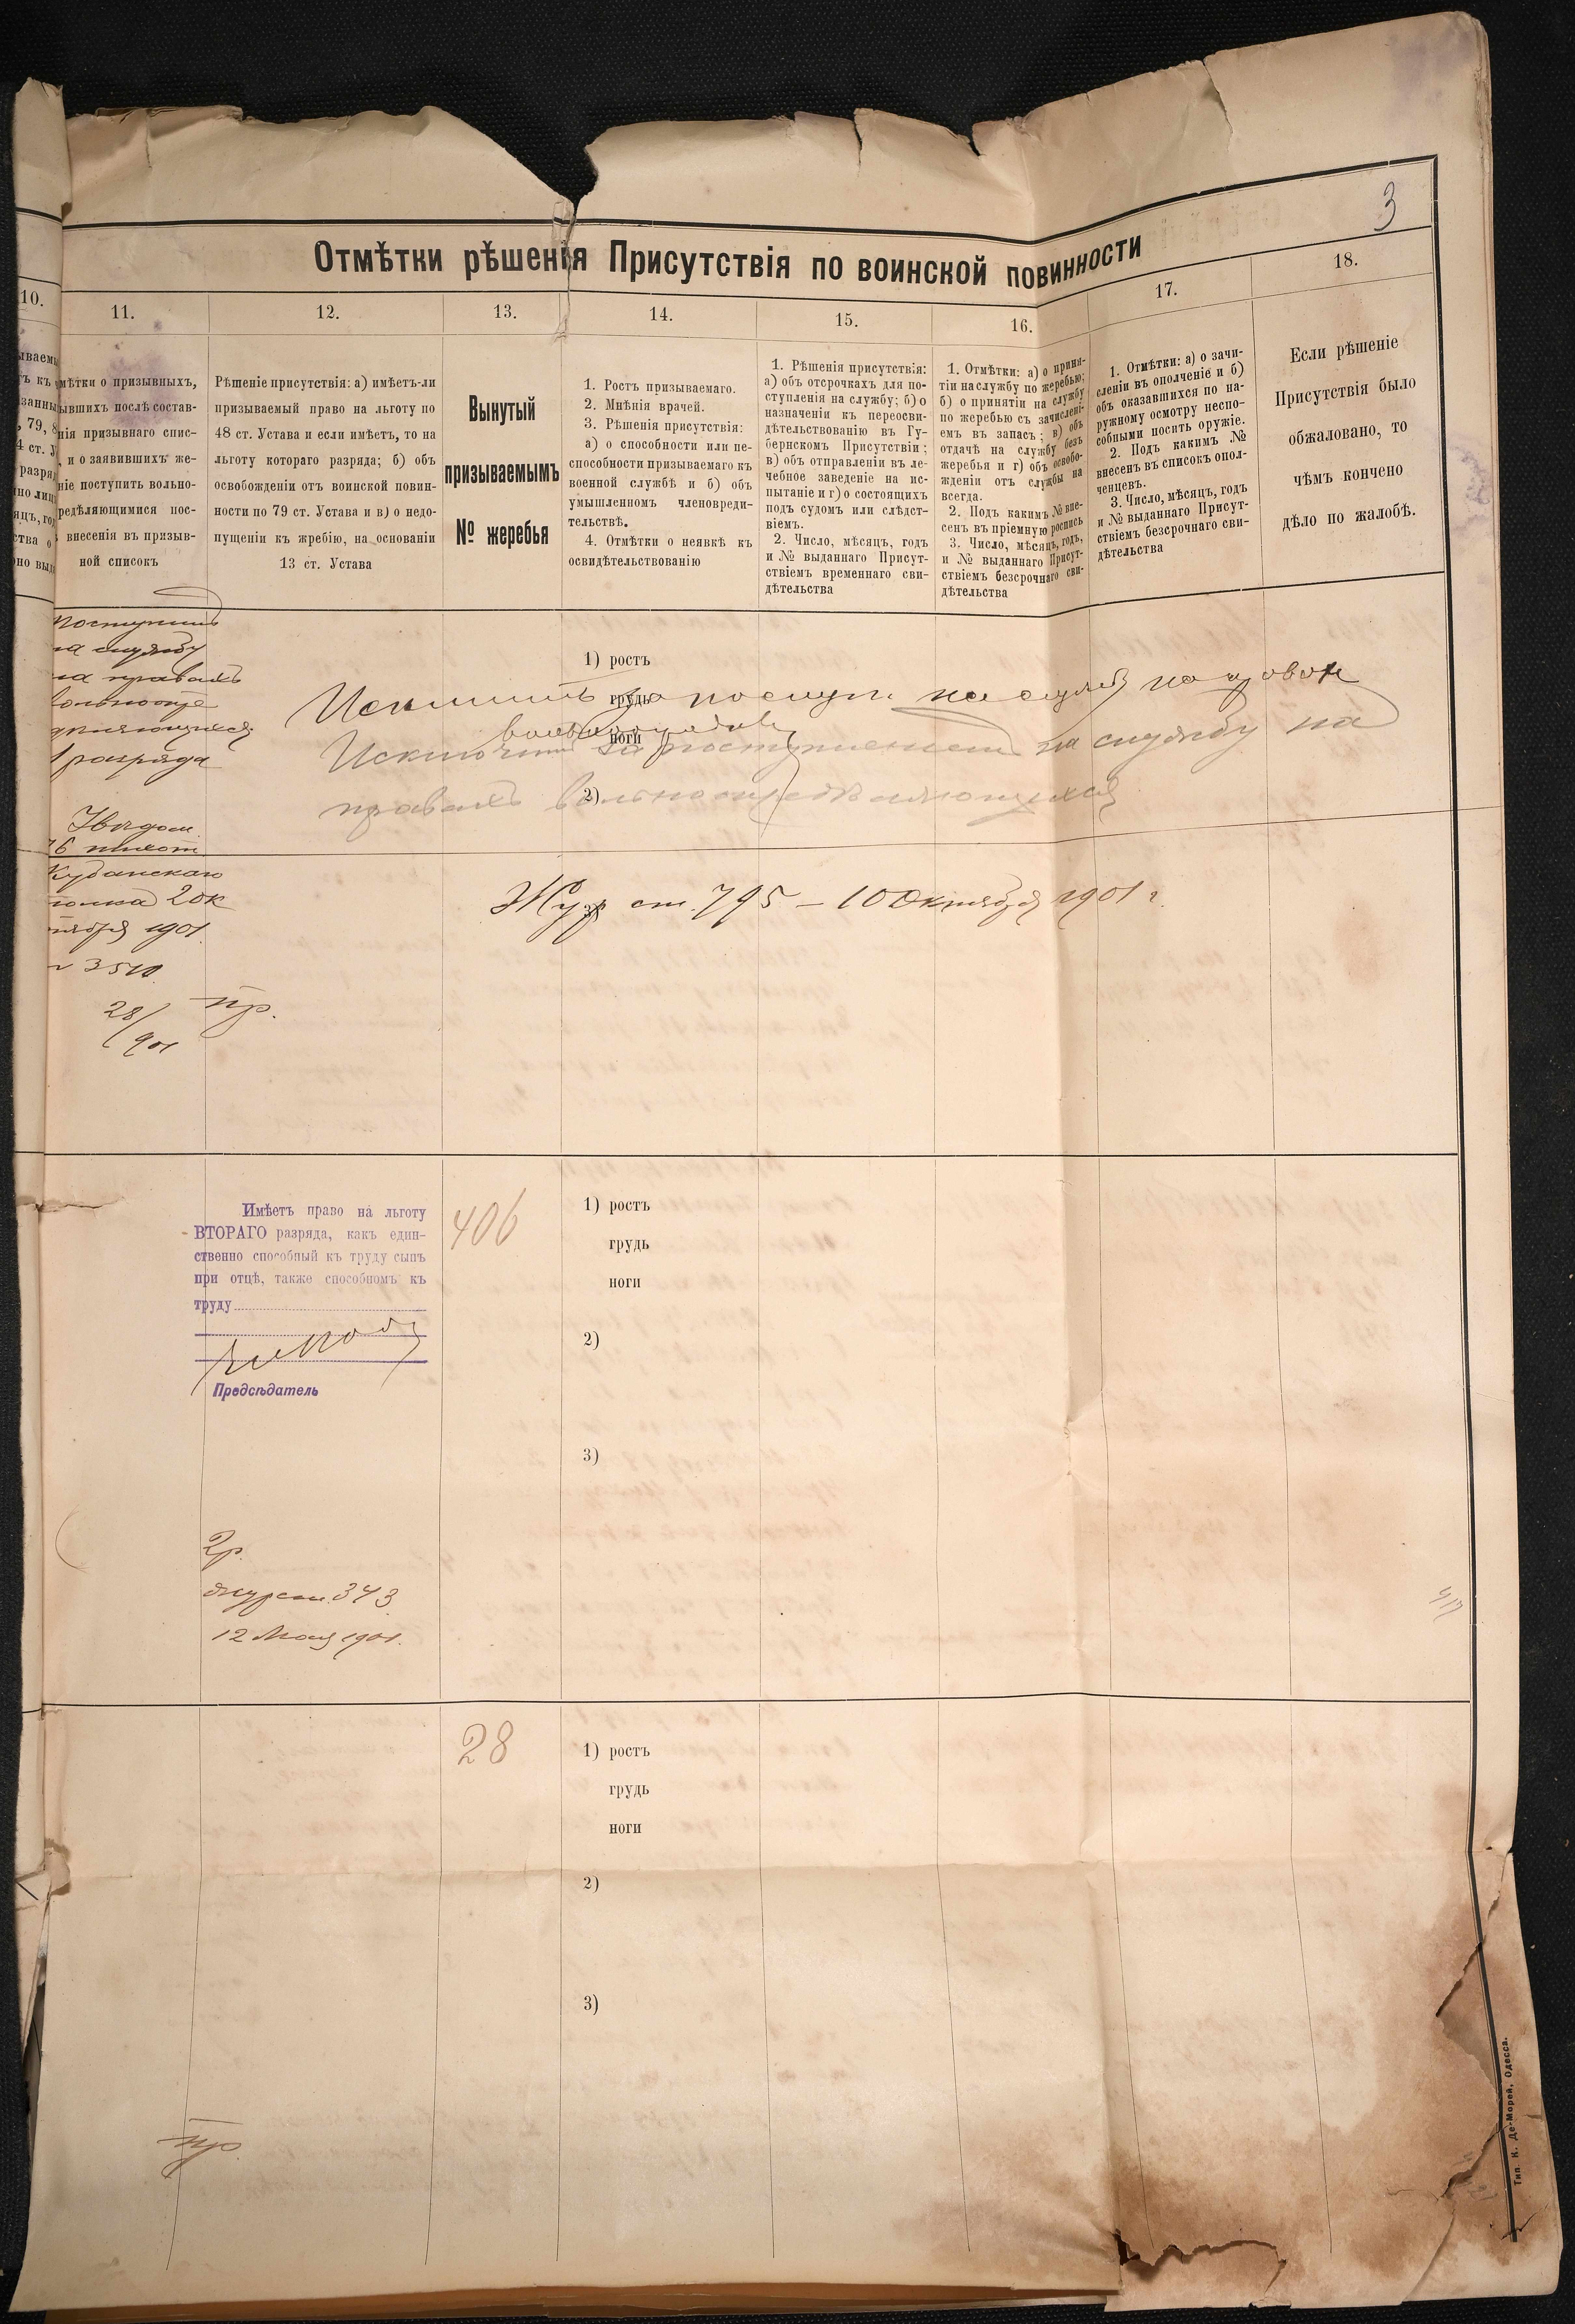 3
Отмѣтки рѣшенія Присутствія по воинской повинности
10.
11.
12.
13.
14.
15.
16.
17.
18.
мѣтки о призывныхъ,
ывшихъ послѣ состав-
нія призывнаго спис-
, и о заявившихъ же-
ніе поступить вольно-
редѣляющимися пос-
внесенія въ призыв-
ной списокъ
Рѣшеніе присутствія: а) имѣетъ-ли
призываемый право на льготу по
48 ст. Устава и если имѣетъ, то на
льготу котораго разряда; б) объ
освобожденіи отъ воинской повин-
ности по 79 ст. Устава и в) о недо-
пущеніи къ жребію, на основаніи
13 ст. Устава
Вынутый
призываемымъ
№ жеребья
1. Ростъ призываемаго.
2. Мнѣнія врачей.
3. Рѣшенія присутствія:
а) о способности или не-
способности призываемаго къ
военной службѣ и б) объ
умышленномъ членовреди-
тельствѣ.
4. Отмѣтки о неявкѣ къ
освидѣтельствованію
1. Рѣшенія присутствія:
а) объ отсрочкахъ для по-
ступленія на службу; б) о
назначеніи къ переосви-
дѣтельствованію въ Гу-
бернскомъ Присутствіи;
в) объ отправленіи въ ле-
чебное заведеніе на ис-
пытаніе и г) о состоящихъ
подъ судомъ или слѣдст-
віемъ.
2. Число, мѣсяцъ, годъ
и № выданнаго Присут-
ствіемъ временнаго сви-
дѣтельства
1. Отмѣтки: а) о приня-
тіи на службу по жеребью;
б) о принятіи на службу
по жеребью съ зачислені-
емъ въ запасъ; в) объ
отдачѣ на службу безъ
жеребья и г) объ освобо-
жденіи отъ службы на
всегда.
2. Подъ какимъ № вне-
сенъ въ пріемную роспись
3. Число, мѣсяцъ, годъ,
и № выданнаго Присут-
ствіемъ безсрочнаго сви-
дѣтельства
1. Отмѣтки: а) о зачи-
сленіи въ ополченіе и б)
объ оказавшихся по на-
ружному осмотру неспо-
собными носить оружіе.
2. Подъ какимъ №
внесенъ въ списокъ опол-
ченцевъ.
3. Число, мѣсяцъ, годъ
и № выданнаго Присут-
ствіемъ безсрочнаго сви-
дѣтельства
Если рѣшеніе
Присутствія было
обжаловано, то
чѣмъ кончено
дѣло по жалобѣ.
Поступилъ
на службу
на правахъ
вольноопре
дѣляющихся
1 разряда
Увѣдом.
76 пѣхот.
Кубанскаго
полка 2 Ок
тября 1901
№ 3510
28/901
пр.
1) ростъ
грудь
ноги
2)
3)
на службу
Исключить за поступленіемъ на службу на
правахъ вольноопредѣляющихся
Жур ст. 795 — 10 Октября 1901 г.
Имѣетъ право на льготу
ВТОРАГО разряда, какъ един-
ственно способный къ труду сынъ
при отцѣ, также способномъ къ
труду
Предсѣдатель
2р.
журст. 343
12 Мая 1901.
406
1) ростъ
грудь
ноги
2)
3)
28
1) ростъ
грудь
ноги
2)
3)
пр.
Тип. К. Де-Морей, Одесса.